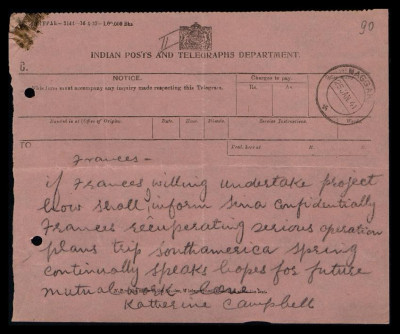 90
INDIAN POSTS AND TELEGRAPHS DEPARTMENT.
NOTICE.
Charges to pay.
This form must accompany any inquiry made respecting this Telegram.
Rs. As.
Handed in at (Office of Origin). Date. Hour. Minute. Service Instructions.
TO
Recd. here at H. M.
Frances -
if Frances willing undertake project
how shall inform sena confidentially
Frances recuperating serious operation
plans trip southamerica spring
continually speaks hopes for future
mutual work
Katherine Campbell